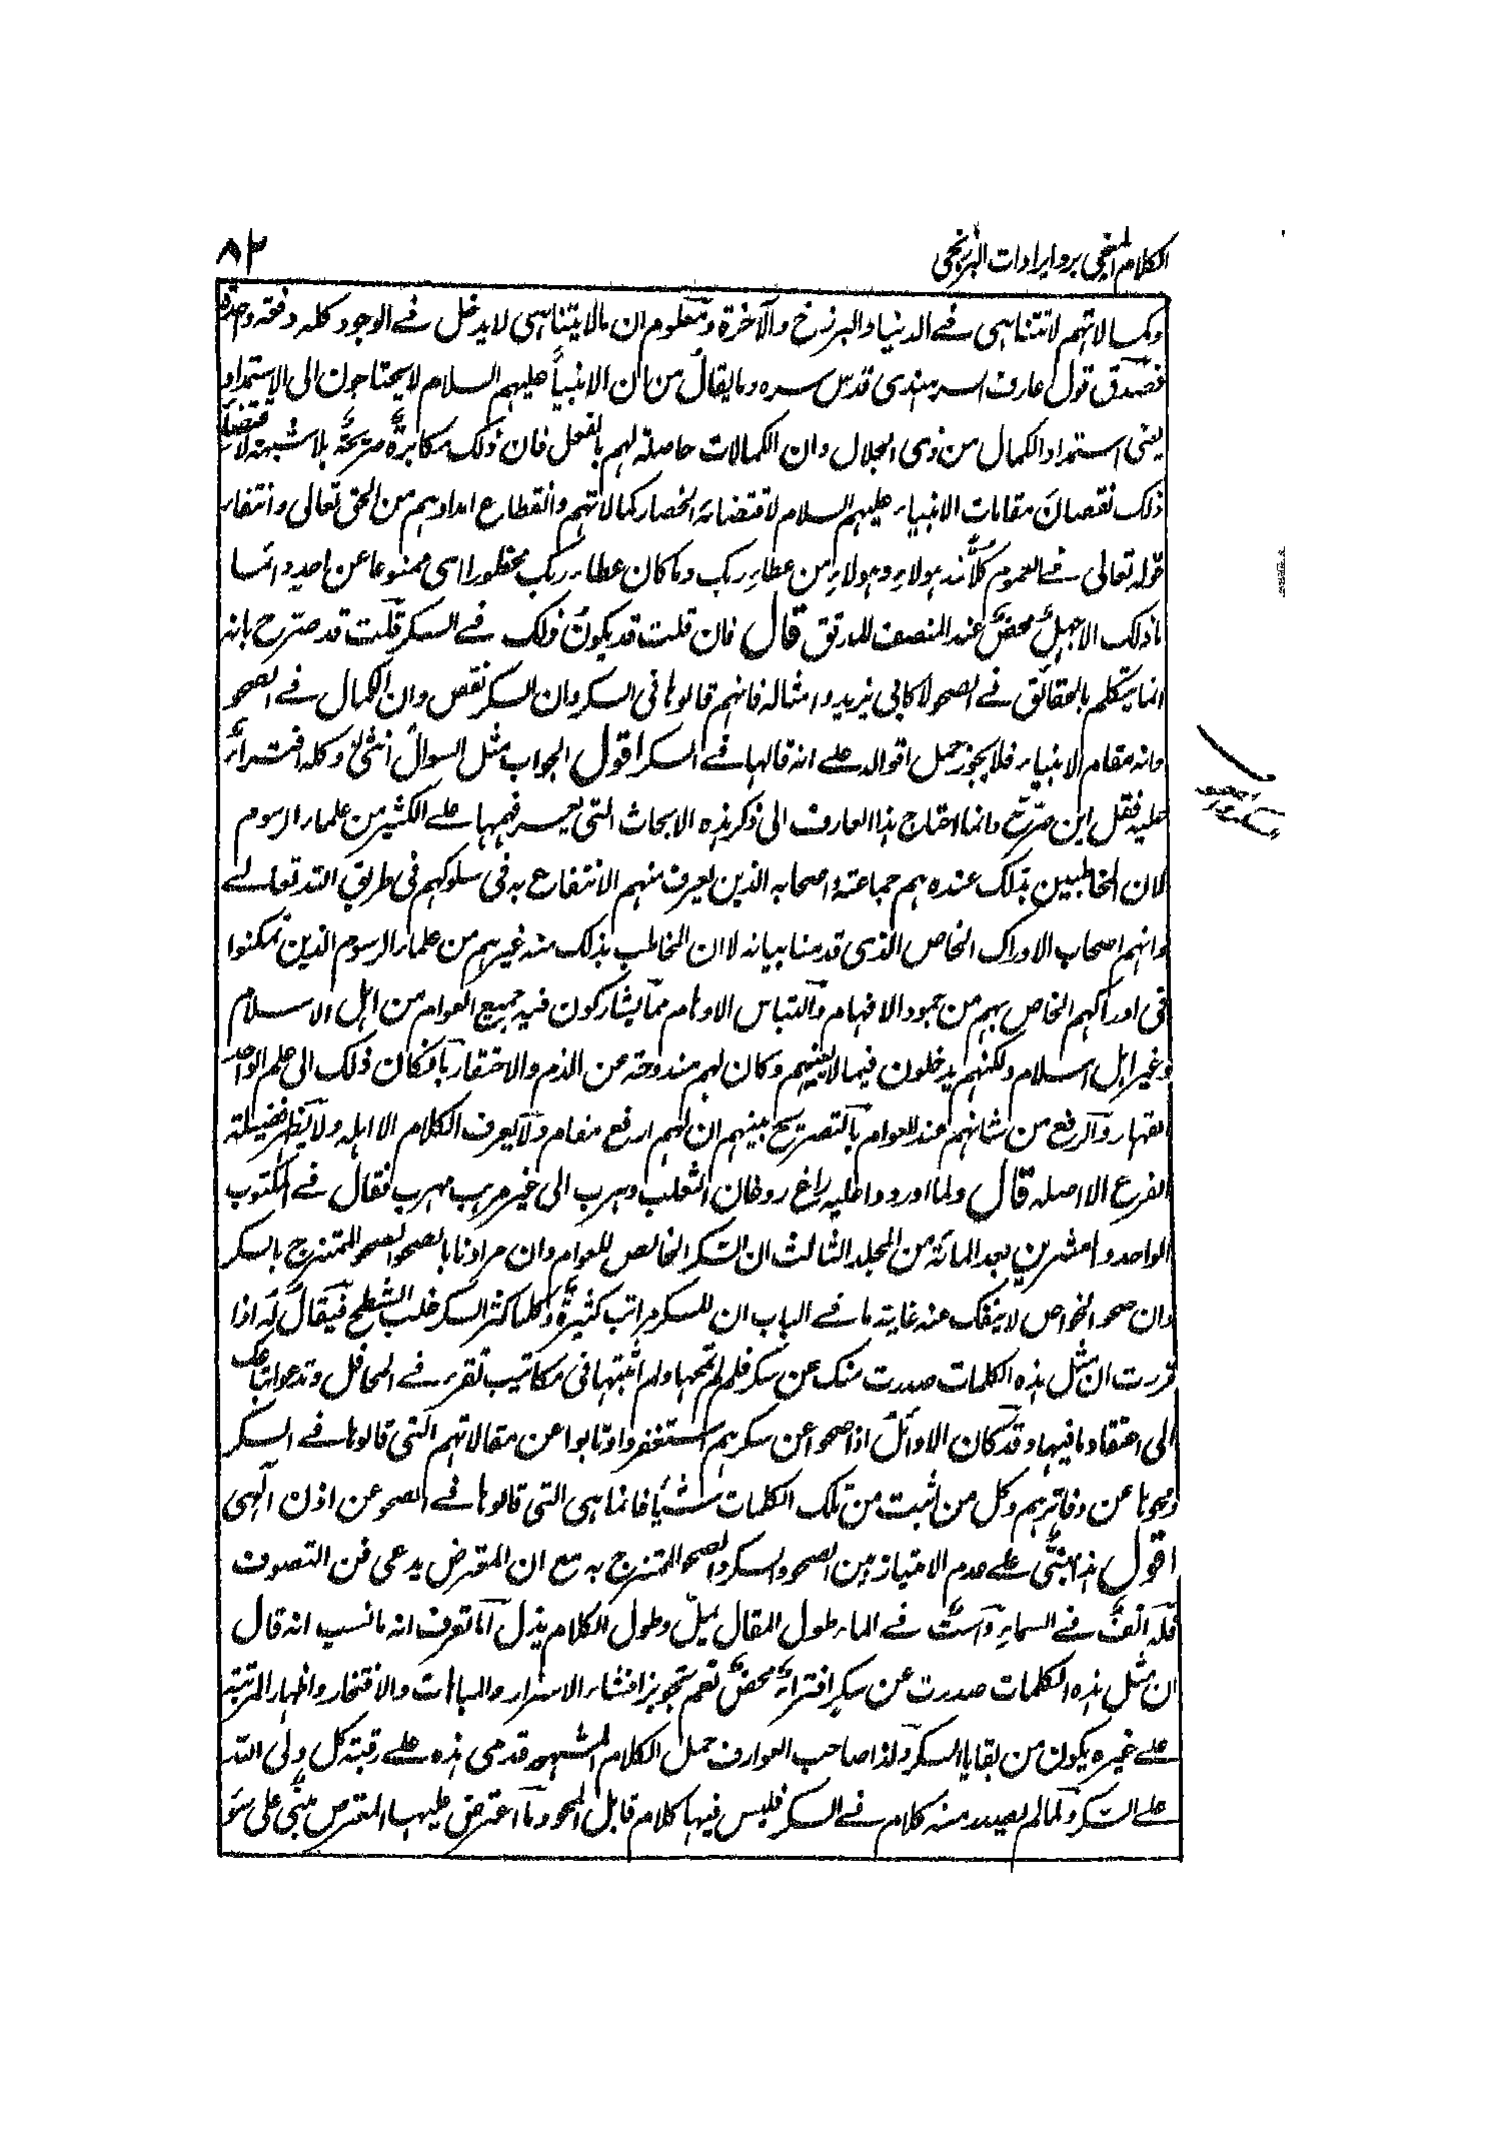 الكلام المنجي برد ايرادات البرزنجي
٨٢
وكمالاتهم لا تتناهى في الدنيا والبرزخ والآخرة ومعلوم ان مالا يتناهى لا يدخل في الوجود كله دفعة واحدة
فصدق قول عارف السرهندي قدس سره وما يقال من ان الانبياء عليهم السلام لا يحتاجون الى الاستمداد
يعني استمداد الكمال من ذي الجلال وان الكمالات حاصلة لهم بالفعل فان ذلك مكابرة صريحة بلا شبهة لاقتضاء
ذلك نقصان مقامات الانبياء عليهم السلام لاقتضائه انحصار كمالاتهم وانقطاع امدادهم من الحق تعالى وانتفاء
قوله تعالى في العموم كلا نمد هولاء وهولاء من عطاء ربك وما كان عطاء ربك محظورا اى ممنوعا عن احد دائما
ما ذلك الا جهل محض عند المنصف المدقق قال فان قلت قد يكون ذلك في السكر قلت قد صرح بانه
انما يتكلم بالحقائق في الصحو لا كابي يزيد وامثاله فانهم قالوها في السكر وان السكر نقص وان الكمال في الصحو
وانه مقام الانبياء فلا يجوز حمل اقواله على انه قالها في السكر اقول الجواب مثل السوال انثى وكله افتراء
عليه فقل اين صرح وانما احتاج هذا العارف الى ذكر هذه الابحاث التى يعسر فهمها على الكثير من علماء الرسوم
لان المخاطبين بذلك عنده هم جماعته واصحابه الذين يعرف منهم الانتفاع به في سلوكهم في طريق الله تعالى
وانهم اصحاب الادراك الخاص الذى قدمنا بيانه لا ان المخاطب بذلك منه غيرهم من علماء الرسوم الذين تمكنوا
في ادراكهم الخاص بهم من جمود الافهام والتباس الاوهام مما يشاركون فيه جميع العوام من اهل الاسلام
وغير اهل اسلام ولكنهم يدخلون فيما لا يعنيهم وكان لهم مندوحة عن الذم والاحتقار بافكان ذلك الى علم الواحد
القهار والرفع من شانهم عند العوام بالتصريح بينهم ان لهم ارفع مقام ولا يعرف الكلام الا اهله ولا يظهر فضيلة
الفرع الا اصله قال ولما اوردوا عليه راغ روغان الثعلب وهرب الى غير مهرب فقال في المكتوب
الواحد وا عشرين بعد المائة من المجلد الثالث ان السكر الخالص للعوام وان مرادنا بالصحو الصحو الممتزج بالسكر
وان صحو الخواص لا ينفك عنه غاية ما في الباب ان للسكر مراتب كثيرة وكلما كثر السكر غلب الشطح فيقال له اذا
قررت ان مثل هذه الكلمات صدرت منك عن سكر فلم لم تمحها ولم اثبتها في مكاتيب تقرء في المحافل وتدعو اتباعك
الى اعتقاد ما فيها وقد كان الاوائل اذا صحوا عن سكرهم استغفروا وتابوا عن مقالاتهم التى قالوها في السكر
ومحوها عن دفاترهم وكل من اثبت من تلك الكلمات شيأ فانما هى التى قالوها في الصحو عن اذن الهى
اقول هذا مبنى على عدم الامتياز بين الصحو والسكر والصحو الممتزج به مع ان المعترض يدعى فن التصوف
فله انف في السماء واست في الماء طول المقال يمل وطول الكلام يذل اما تعرف انه ما نسب انه قال
ان مثل هذه الكلمات صدرت عن سكر افتراء محض نعم تجويز افشاء الاسرار والمباهات والافتخار واظهار المرتبة
على غيره يكون من بقايا السكر ولذا صاحب العوارف حمل الكلام المشهور قدمى هذه على رقبة كل ولى الله
على السكر ولما لم يصدر منه كلام في السكر فليس فيها كلام قابل المحو وما اعترض عليها المعترض مبنى على سوء